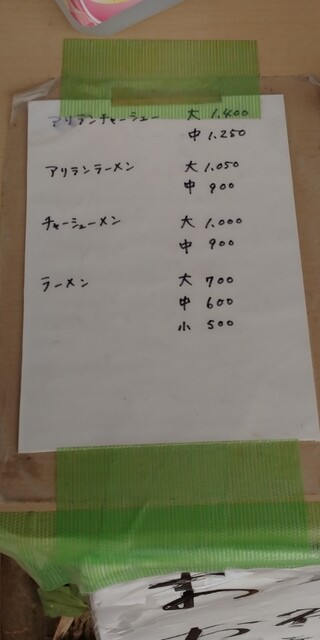 アリランチャーシュー 大 1.400
中 1.250
アリランラーメン 大 1.050
中 900
チャーシューメン 大 1.000
中 900
ラーメン 大 700
中 600
小 500